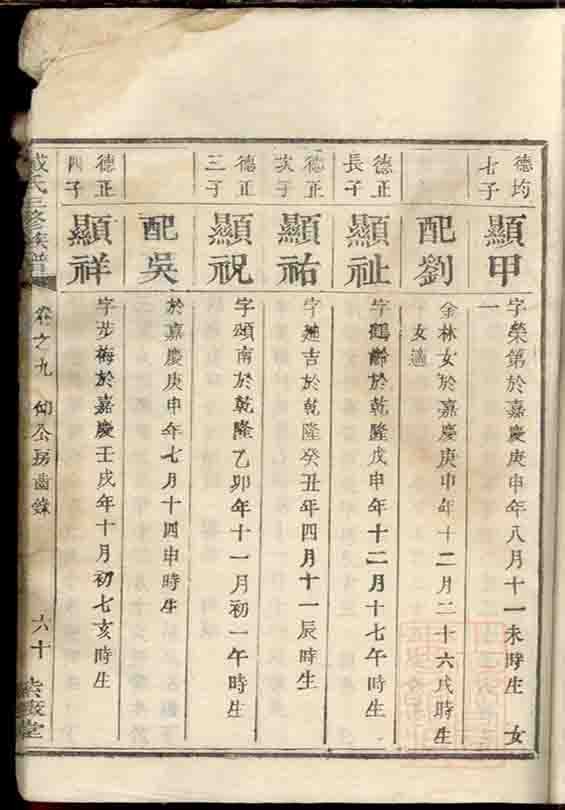 德均
七子
顯甲
字榮第於嘉慶庚申年八月十一未時生 女
一
配劉
金林女於嘉慶庚申年十二月二十六戌時生
女適
德正
長子
顯祉
字鶴齡於乾隆戊申年十二月十七午時生
德正
次子
顯祐
字迪吉於乾隆癸丑年四月十一辰時生
德正
三子
顯祝
字頌南於乾隆乙卯年十一月初一午時生
配吳
於嘉慶庚申年七月十四申時生
德正
四子
顯祥
字步梅於嘉慶壬戌年十月初七亥時生
氏三修族譜
卷之九 仰公房齒錄
六十
堂